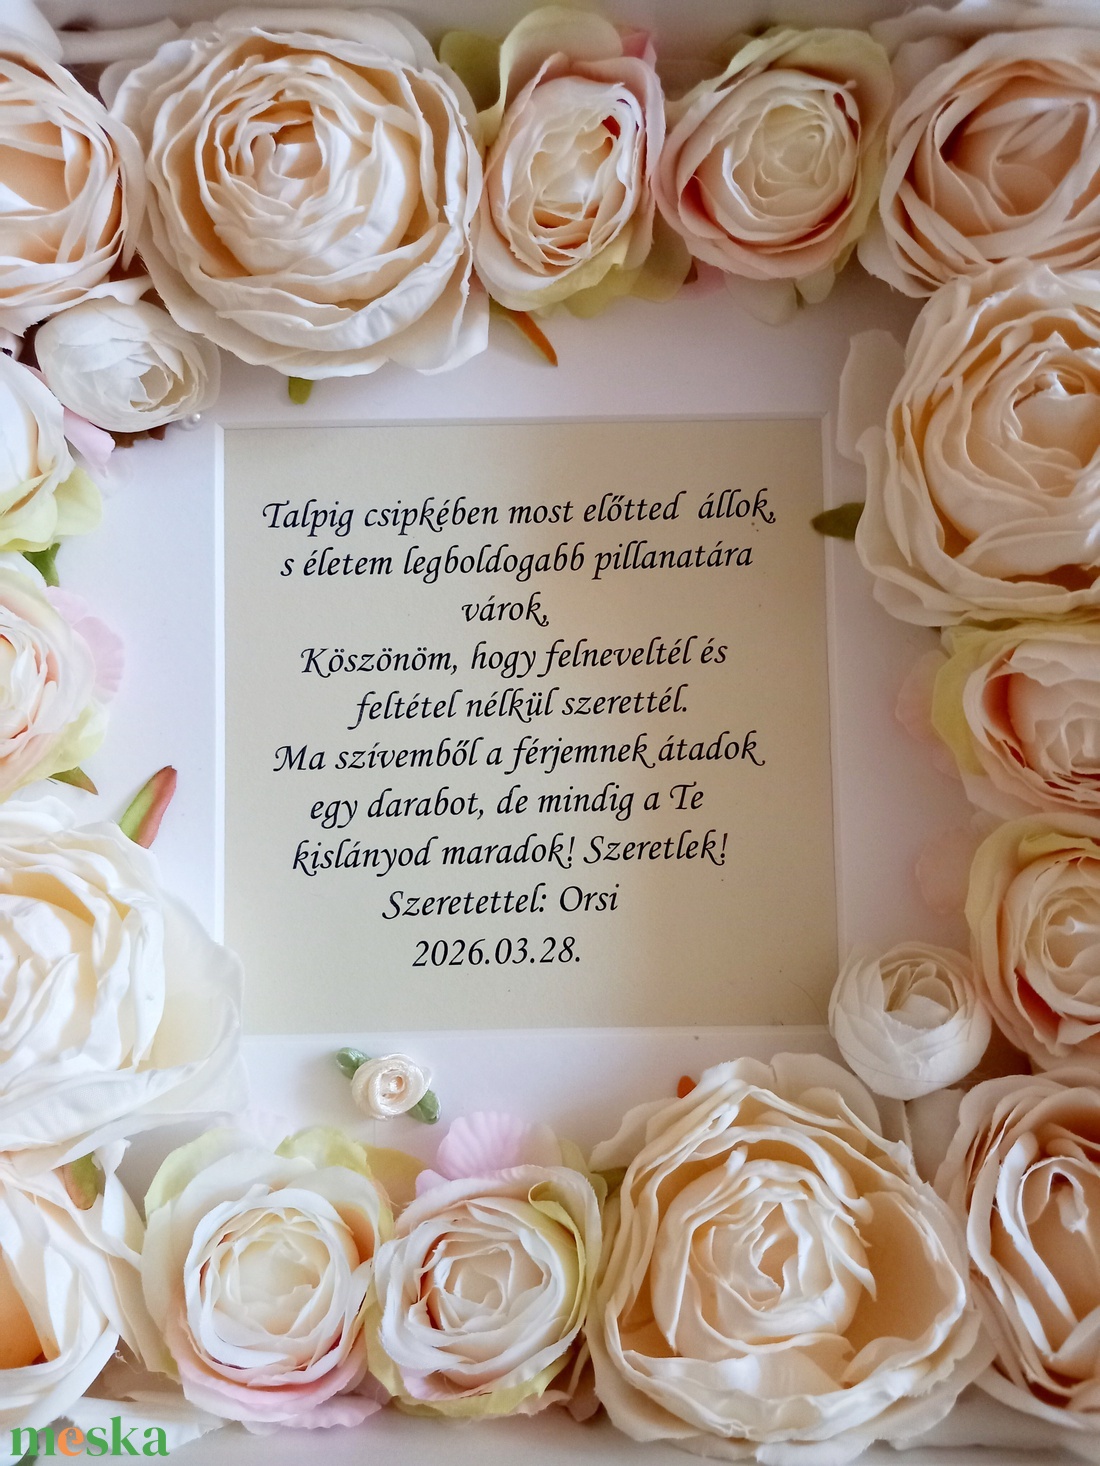 Talpig csipkében most előtted állok,
s életem legboldogabb pillanatára
várok,
Köszönöm, hogy felneveltél és
feltétel nélkül szerettél.
Ma szívemből a férjemnek átadok
egy darabot, de mindig a Te
kislányod maradok! Szeretlek!
Szeretettel: Orsi
2026.03.28.
meska